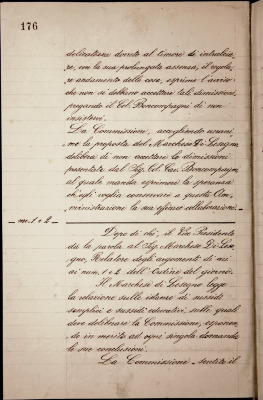 176
delicatezza dovuto al timore di intralcia-
re, con la sua prolungata assenza, il regola-
re andamento delle cose, esprime l'avviso
che non si debbano accettare tali dimissioni,
pregando il Col. Boncompagni di non
insistervi.
La Commissione, accogliendo unani-
me la proposta del Marchese Di Lesegno
delibera di non accettare le dimissioni
presentate dal Sig. Col. Cav. Boncompagni
al quale manda esprimere la speranza
ch'egli voglia conservare a questa Am-
ministrazione la sua efficace collaborazione.
n. 1 e 2
Dopo di che, il Vice Presidente
da la parola al Sig. Marchese Di Lese-
gno, Relatore degli argomenti di cui
ai num. 1 e 2 dell'Ordine del giorno.
Il Marchese di Lesegno legge
la relazione sulle istanze di sussidi
semplici e sussidi educativi, sulle quali
deve deliberare la Commissione, esponen-
do in merito ad ogni singola domanda
le sue conclusioni.
La Commissione sentito il